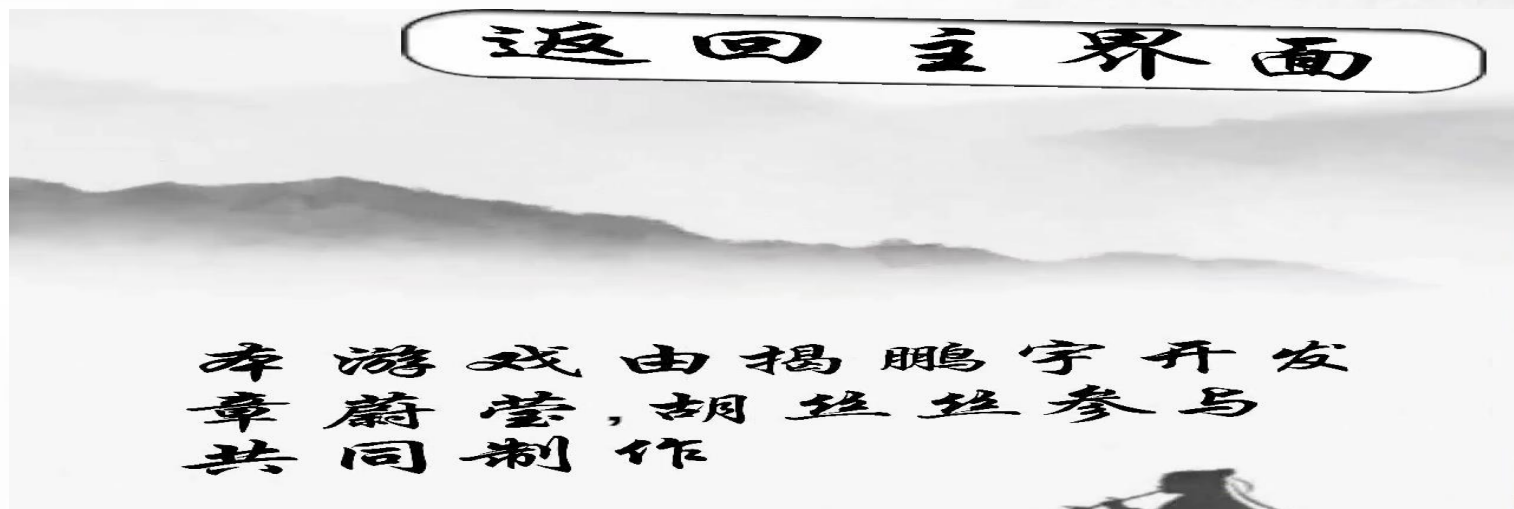 返回主界面
本游戏由揭鹏宇开发
章蔚莹,胡丝丝参与
共同制作